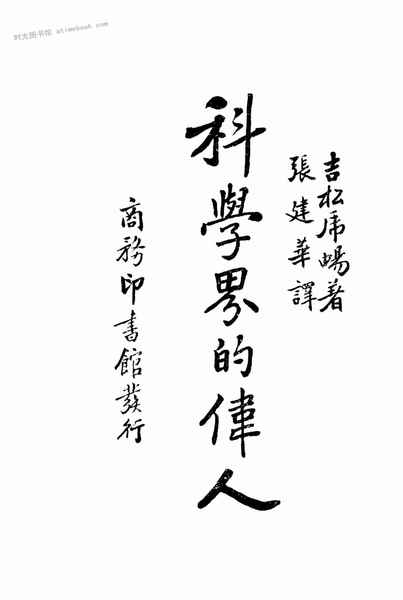 时光图书馆 atimebook.com
吉松虎暢著
張建華譯
科學界的偉人
商務印書館發行